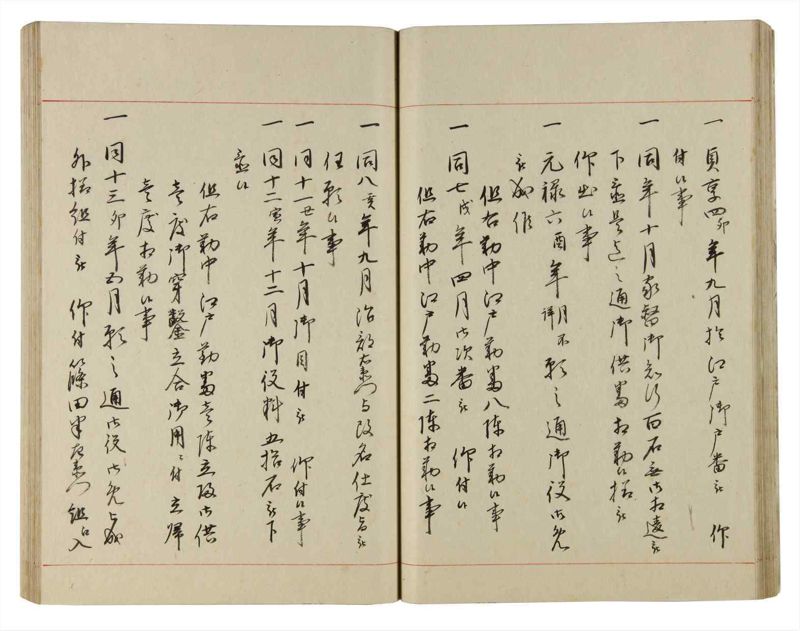 一貞享四卯年九月於江戸御戸番被 仰
付候事
一同年十月家督御知行百石無御相違被
下置是迄之通御供番相勤候様被
仰出候事
一元禄六酉年 月不詳 願之通御役御免
被成下
但右勤中江戸勤番八陳相勤候事
一同七戌年四月御次番被 仰付候
但右勤中江戸勤番二陳相勤候事
一同八亥年九月治部右衛門与改名仕度旨被
任願候事
一同十一寅年十月御目付被 仰付候事
一同十二 年十二月御役料五拾石被下
置候
但右勤中江戸勤番壱陳立帰御供
壱度御穿鑿立合御用ニ付立帰
壱度相勤候事
一同十三 年五月願之通御役御免被成
外様組付被 仰付篠田半左衛門組に入